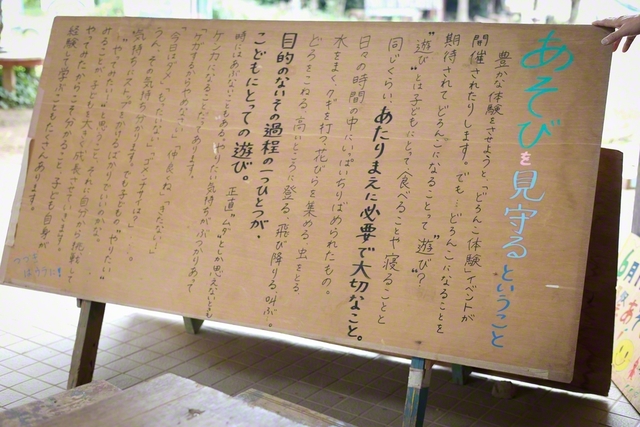 あそびを見守るということ
豊かな体験をさせようと、「どろんこ体験」イベントが
開催されたりします。でも…どろんこになることを
期待されてどろんこになることって"遊び"？
"遊び"とは子どもにとって食べることや寝ることと
同じくらいあたりまえに必要で大切なこと。
日々の時間の中にいっぱいちりばめられたもの。
水をまく、クギを打つ、花びらを集める、虫をとる、
どろをこねる、高いところに登る、飛び降りる、叫ぶ。
目的のないその過程の一つひとつが、
こどもにとっての遊び。
正直"ムダ"とか思えないとも
時にはあぶないこともある。やりたい気持ちがぶつかりあって
ケンカになることだってあります。
「ケガするからやめなさい」「仲良くね」
「今日はダメ」「もったいない」「ゴメンネは？」…。
うん、その気持ちも分かります。でも子どもの"やりたい"
気持ちにストップをかけるばかりでいいのかな。
"やってみたい！"と思うこと、それに自分から挑戦して
みることが、子どもを大きく成長させていきます。
やってみたからこそ分かること、子ども自身が
経験して学ぶこともたくさんあります。
つづき
はうらに
6月